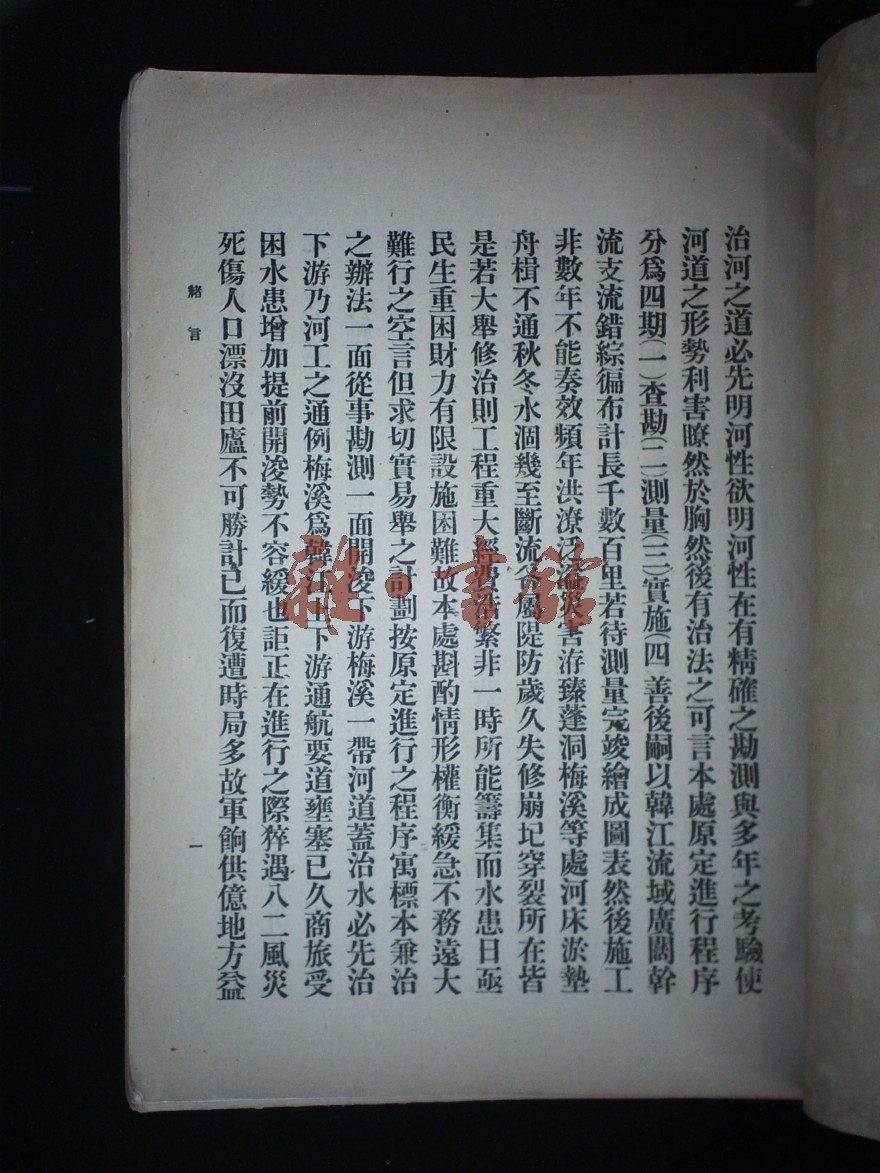 治河之道必先明河性欲明河性在有精確之勘測與多年之考驗使
河道之形勢利害瞭然於胸然後有治法之可言本處原定進行程序
分爲四期(一)查勘(二)測量(三)實施(四)善後嗣以韓江流域廣闊幹
流支流錯綜徧布計長千數百里若待測量完竣繪成圖表然後施工
非數年不能奏效頻年洪潦泛溢災害洊臻蓬洞梅溪等處河床淤墊
舟楫不通秋冬水涸幾至斷流各屬隄防歲久失修崩圮穿裂所在皆
是若大舉修治則工程重大經費浩繁非一時所能籌集而水患日亟
民生重困財力有限設施困難故本處斟酌情形權衡緩急不務遠大
難行之空言但求切實易舉之計劃按原定進行之程序寓標本兼治
之辦法一面從事勘測一面開浚下游梅溪一帶河道蓋治水必先治
下游乃河工之通例梅溪爲韓江上下游通航要道壅塞已久商旅受
困水患增加提前開浚勢不容緩也詎正在進行之際猝遇八二風災
死傷人口漂沒田廬不可勝計已而復遭時局多故軍餉供億地方益
緒言
一
雜·書館